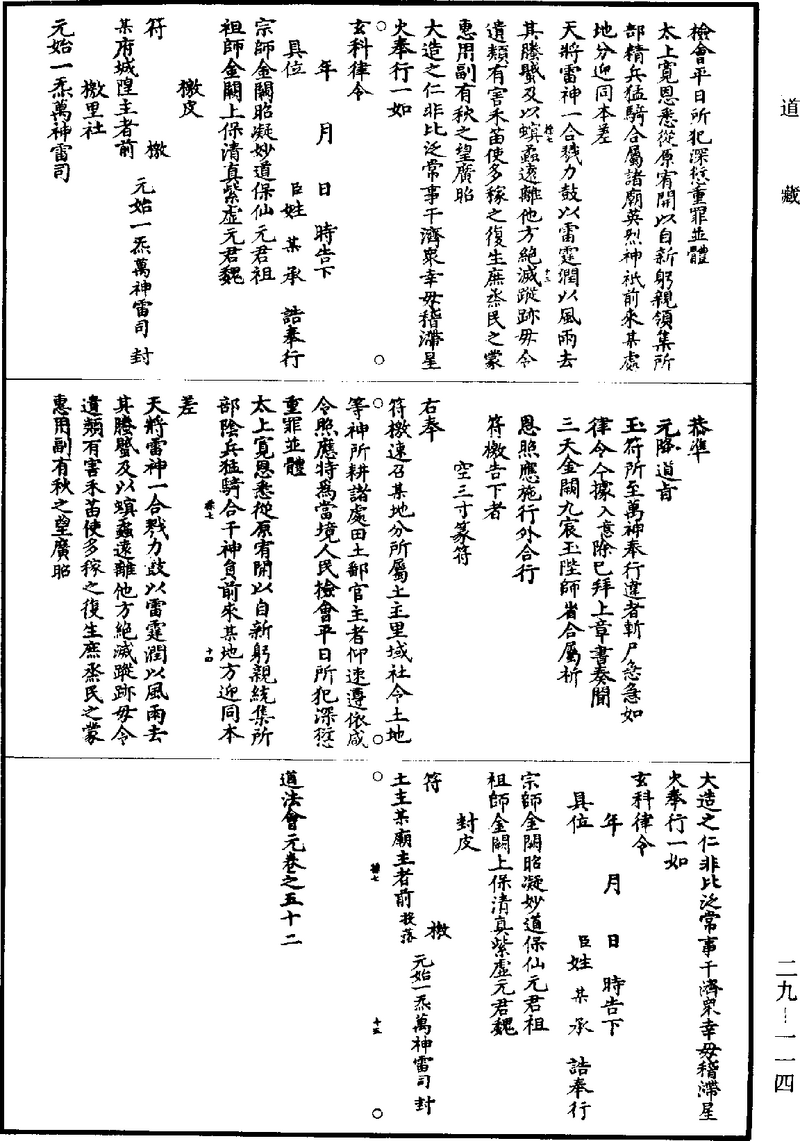 道藏
檢會平日所犯深愆重罪並體
太上寬恩悉從原宥開以自新躬親領集所
部精兵猛騎合屬諸廟英烈神祇前來某處
地分迎同本差
天將雷神一合戮力鼓以雷霆潤以風雨去
其螣𧒂及以蟥䖝遠離他方絕滅蹤跡毋令
遺類有害禾苗使多稼之復生庶烝民之蒙
惠用副有秋之望廣昭
大造之仁非比泛常事干濟衆幸毋稽滯星
火奉行一如
玄科律令
年 月 日 時告下
具位 臣姓 某 承 誥奉行
宗師金闕昭凝妙道保仙元君祖
祖師金闕上保清真紫虛元君魏
檄皮
符 檄
某府城隍主者前 元始一炁萬神雷司 封
檄里社
元始一炁萬神雷司
恭準
元降道旨
玉符所至萬神奉行違者斬尸急急如
律令今據入意除已拜上章書奏聞
三天金闕九宸玉陛師省合屬祈
恩照應施行外合行
符檄告下者
空三寸篆符
右奉
符檄速召某地分所屬土主里域社令土地
等神所耕諸處田土鄙官主者仰速遵依咸
令照應特爲當境人民檢會平日所犯深愆
重罪並體
太上寬恩悉從原宥開以自新躬親統集所
部陰兵猛騎合干神負前來某地方迎同本
差
十四
天將雷神一合戮力鼓以雷霆潤以風雨去
其螣𧒂及以蟥䖝遠離他方絕滅蹤跡毋令
遺類有害禾苗使多稼之復生庶烝民之蒙
惠用副有秋之望廣昭
大造之仁非比泛常事干濟衆幸毋稽滯星
火奉行一如
玄科律令
年 月 日 時告下
具位 臣姓 某 承 誥奉行
宗師金闕昭凝妙道保仙元君祖
祖師金闕上保清真紫虛元君魏
封皮
符 檄
土主某廟主者前投落 元始一炁萬神雷司 封
十五
道法會元卷之五十二
二九-一一四